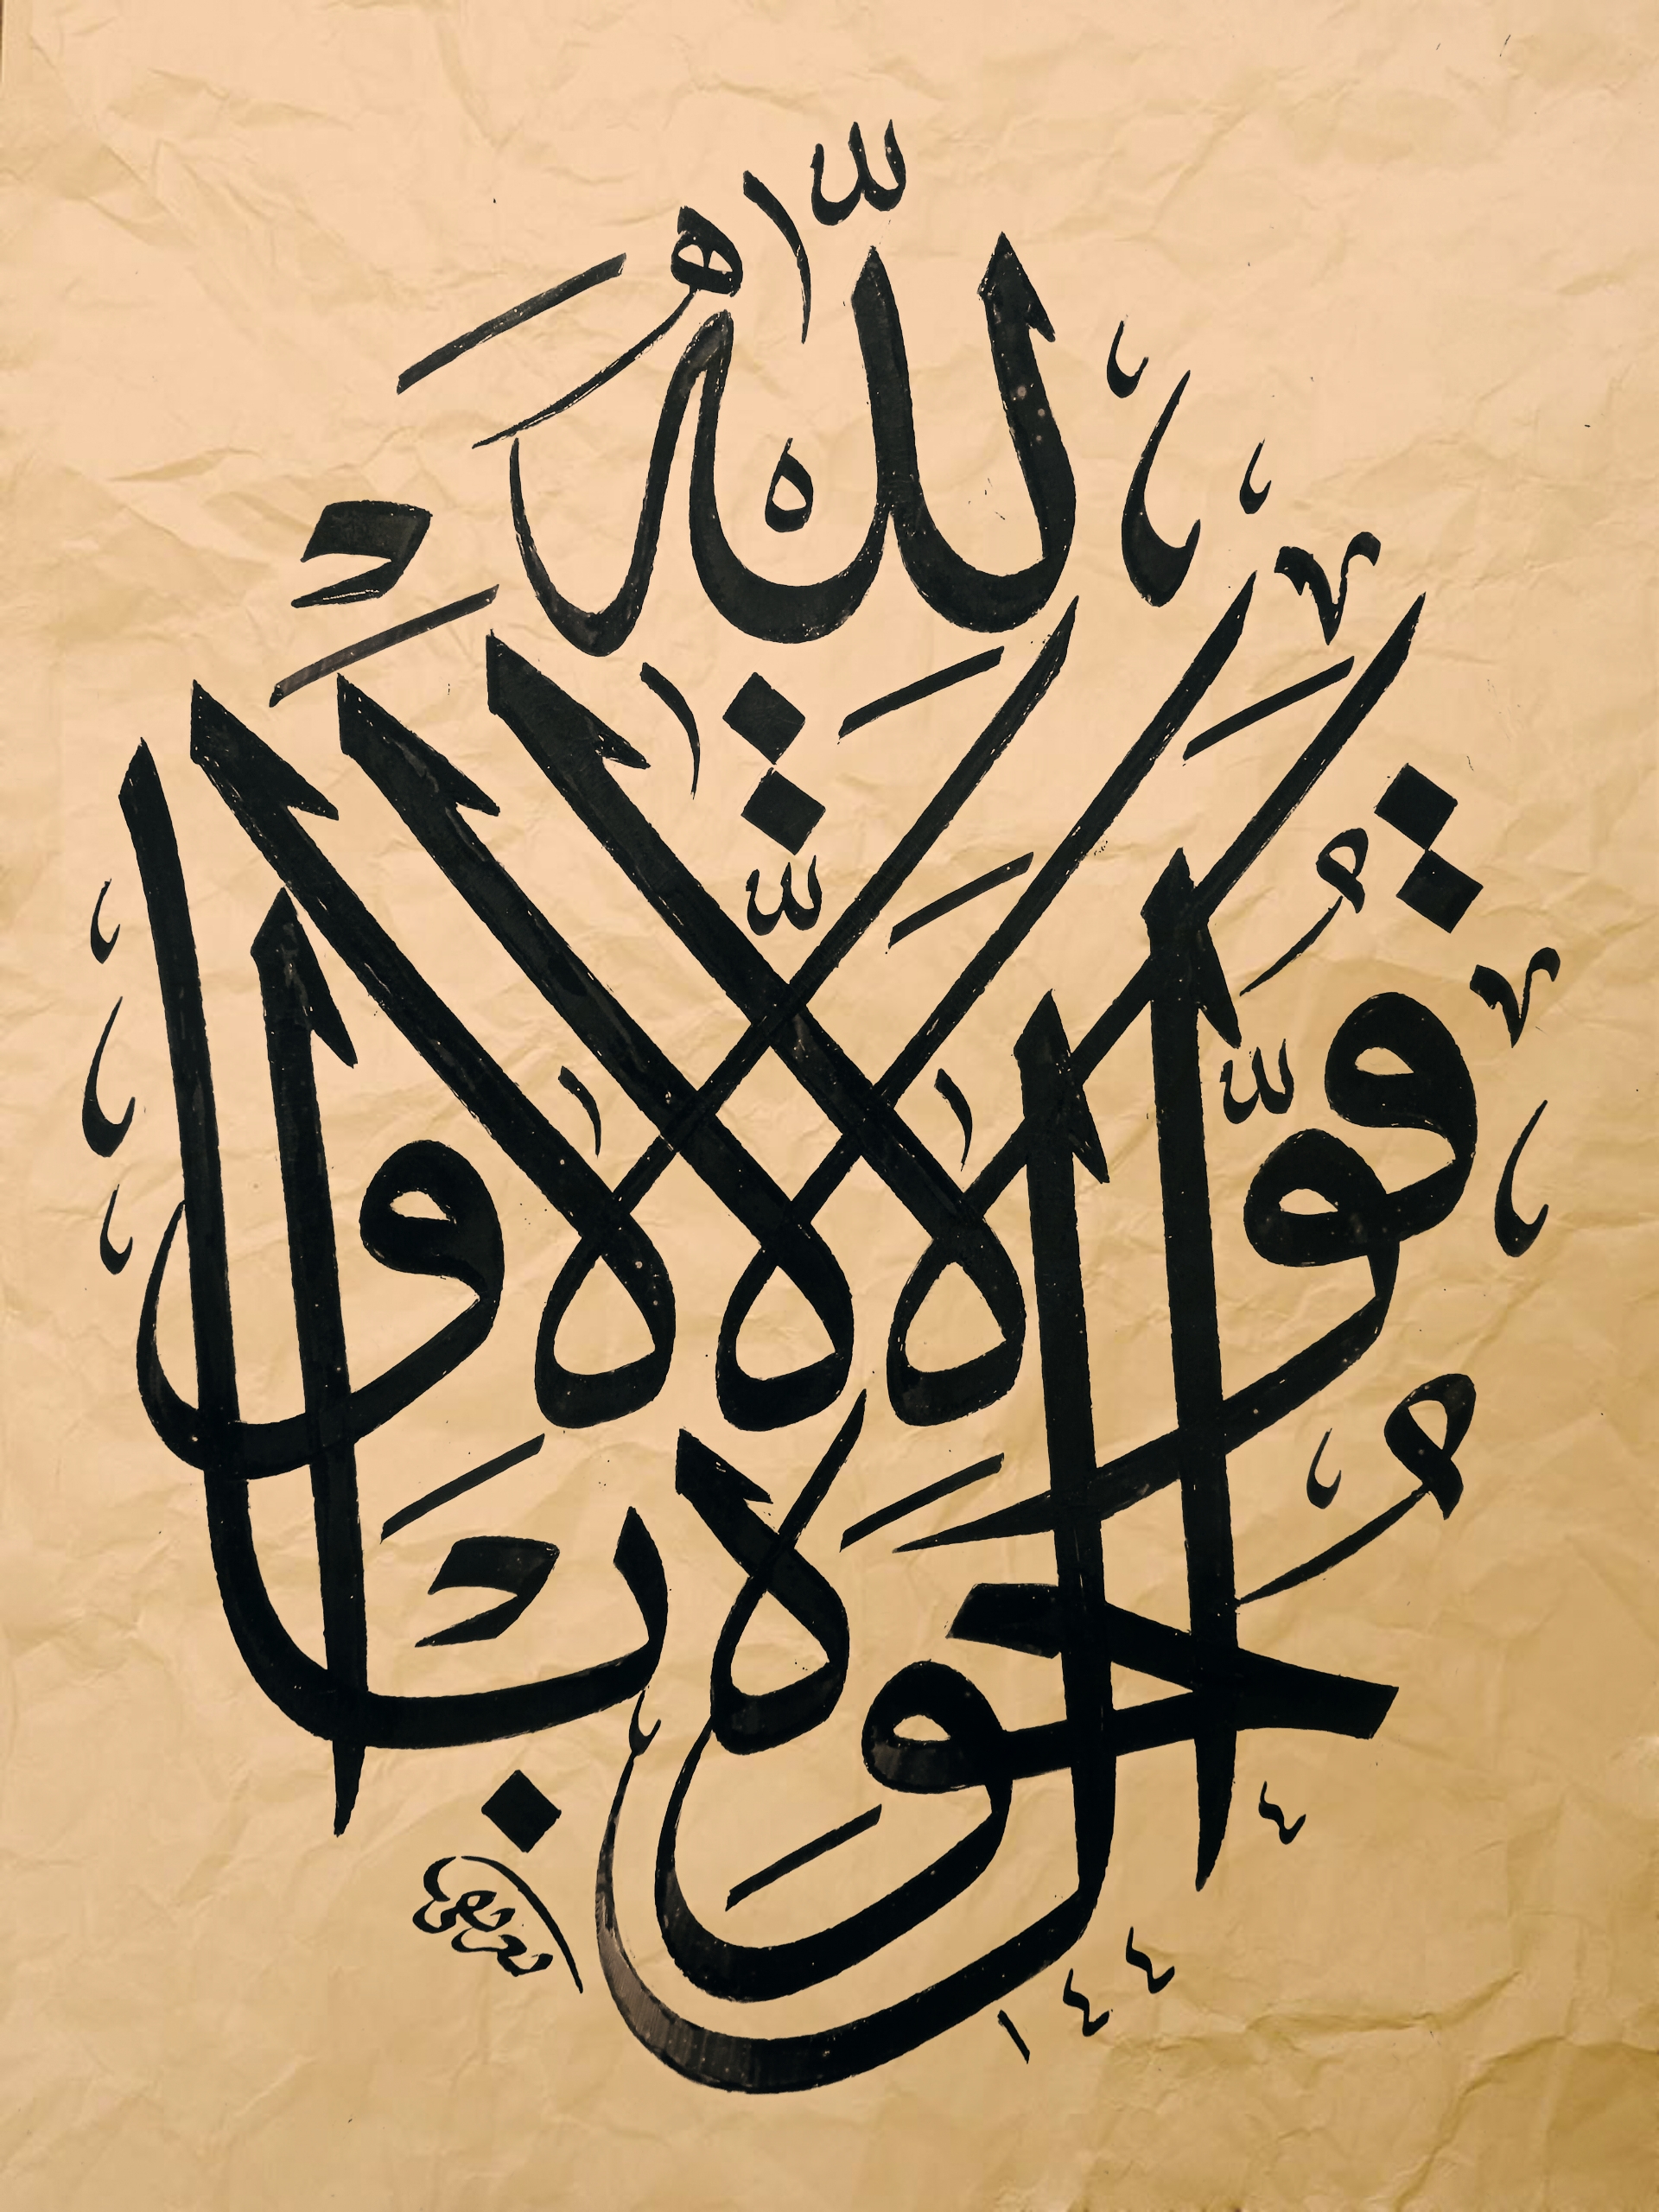 لَا حَوْلَ وَلَا قُوَّةَ إِلَّا بِاللَّهِ
١٤٤٤